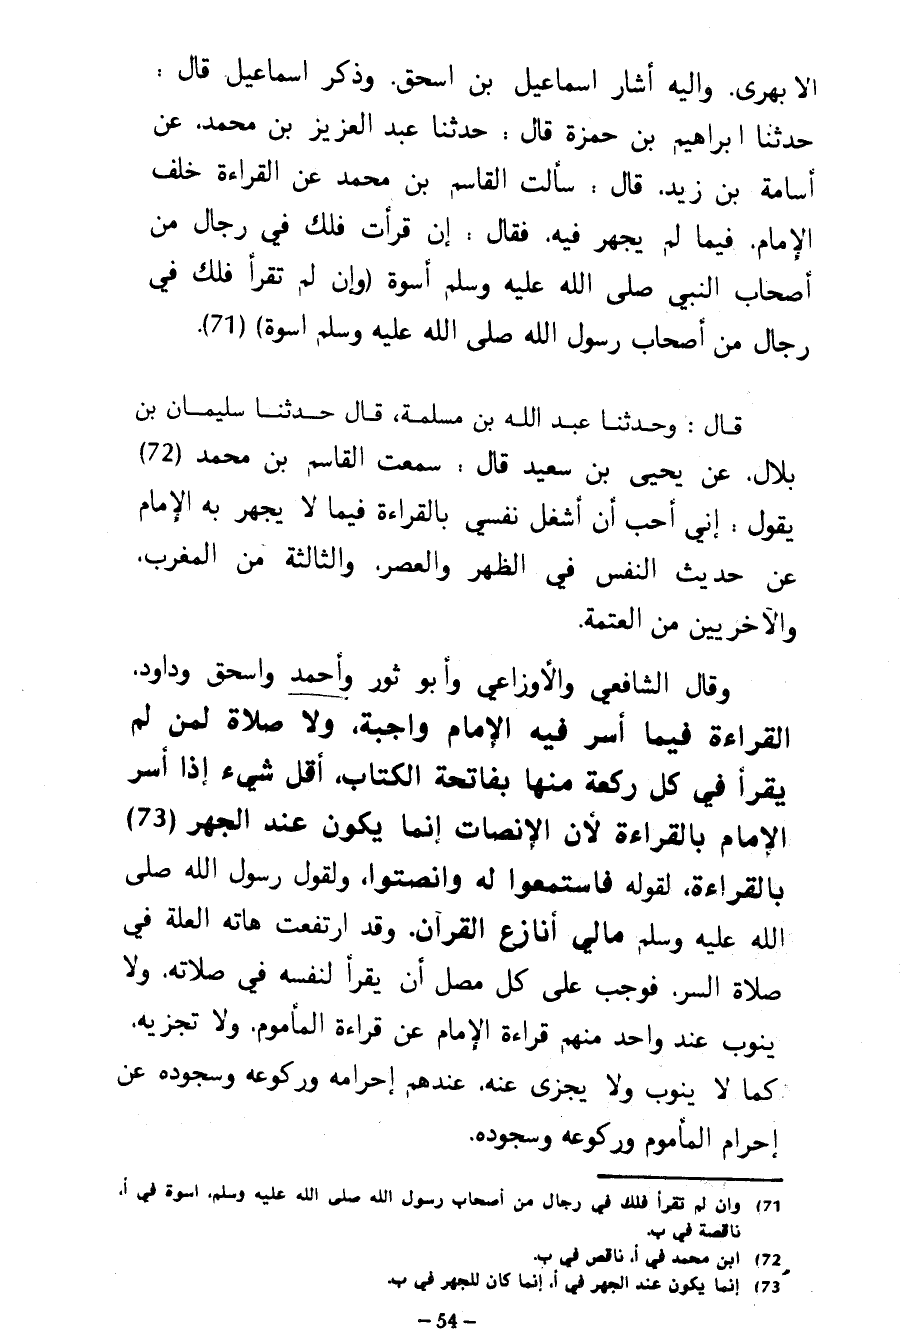 الابهرى. واليه أشار اسماعيل بن اسحق. وذكر اسماعيل قال :
حدثنا ابراهيم بن حمزة قال : حدثنا عبد العزيز بن محمد، عن
أسامة بن زيد، قال : سألت القاسم بن محمد عن القراءة خلف
الإمام، فيما لم يجهر فيه، فقال : إن قرأت فلك في رجال من
أصحاب النبي صلى الله عليه وسلم أسوة (وإن لم تقرأ فلك في
رجال من أصحاب رسول الله صلى الله عليه وسلم اسوة) (71).
قال : وحدثنا عبد الله بن مسلمة، قال حدثنا سليمان بن
بلال، عن يحيى بن سعيد قال : سمعت القاسم بن محمد (72)
يقول : إني أحب أن أشغل نفسي بالقراءة فيما لا يجهر به الإمام
عن حديث النفس في الظهر والعصر، والثالثة من المغرب،
والآخريين من العتمة.
وقال الشافعي والأوزاعي وأبو ثور وأحمد واسحق وداود،
القراءة فيما أسر فيه الإمام واجبة، ولا صلاة لمن لم
يقرأ في كل ركعة منها بفاتحة الكتاب، أقل شيء إذا أسر
الإمام بالقراءة لأن الإنصات إنما يكون عند الجهر (73)
بالقراءة، لقوله فاستمعوا له وانصتوا، ولقول رسول الله صلى
الله عليه وسلم مالي أنازع القرآن. وقد ارتفعت هاته العلة في
صلاة السر. فوجب على كل مصل أن يقرأ لنفسه في صلاته، ولا
ينوب عند واحد منهم قراءة الإمام عن قراءة المأموم. ولا تجزيه،
كما لا ينوب ولا يجزى عنه، عندهم إحرامه وركوعه وسجوده عن
إحرام المأموم وركوعه وسجوده.
71) وان لم تقرأ فلك في رجال من أصحاب رسول الله صلى الله عليه وسلم، اسوة في أ،
ناقصة في ب.
72) ابن محمد في أ، ناقص في ب.
73) إنما يكون عند الجهر في أ، إنما كان للجهر في ب.
– 54 –